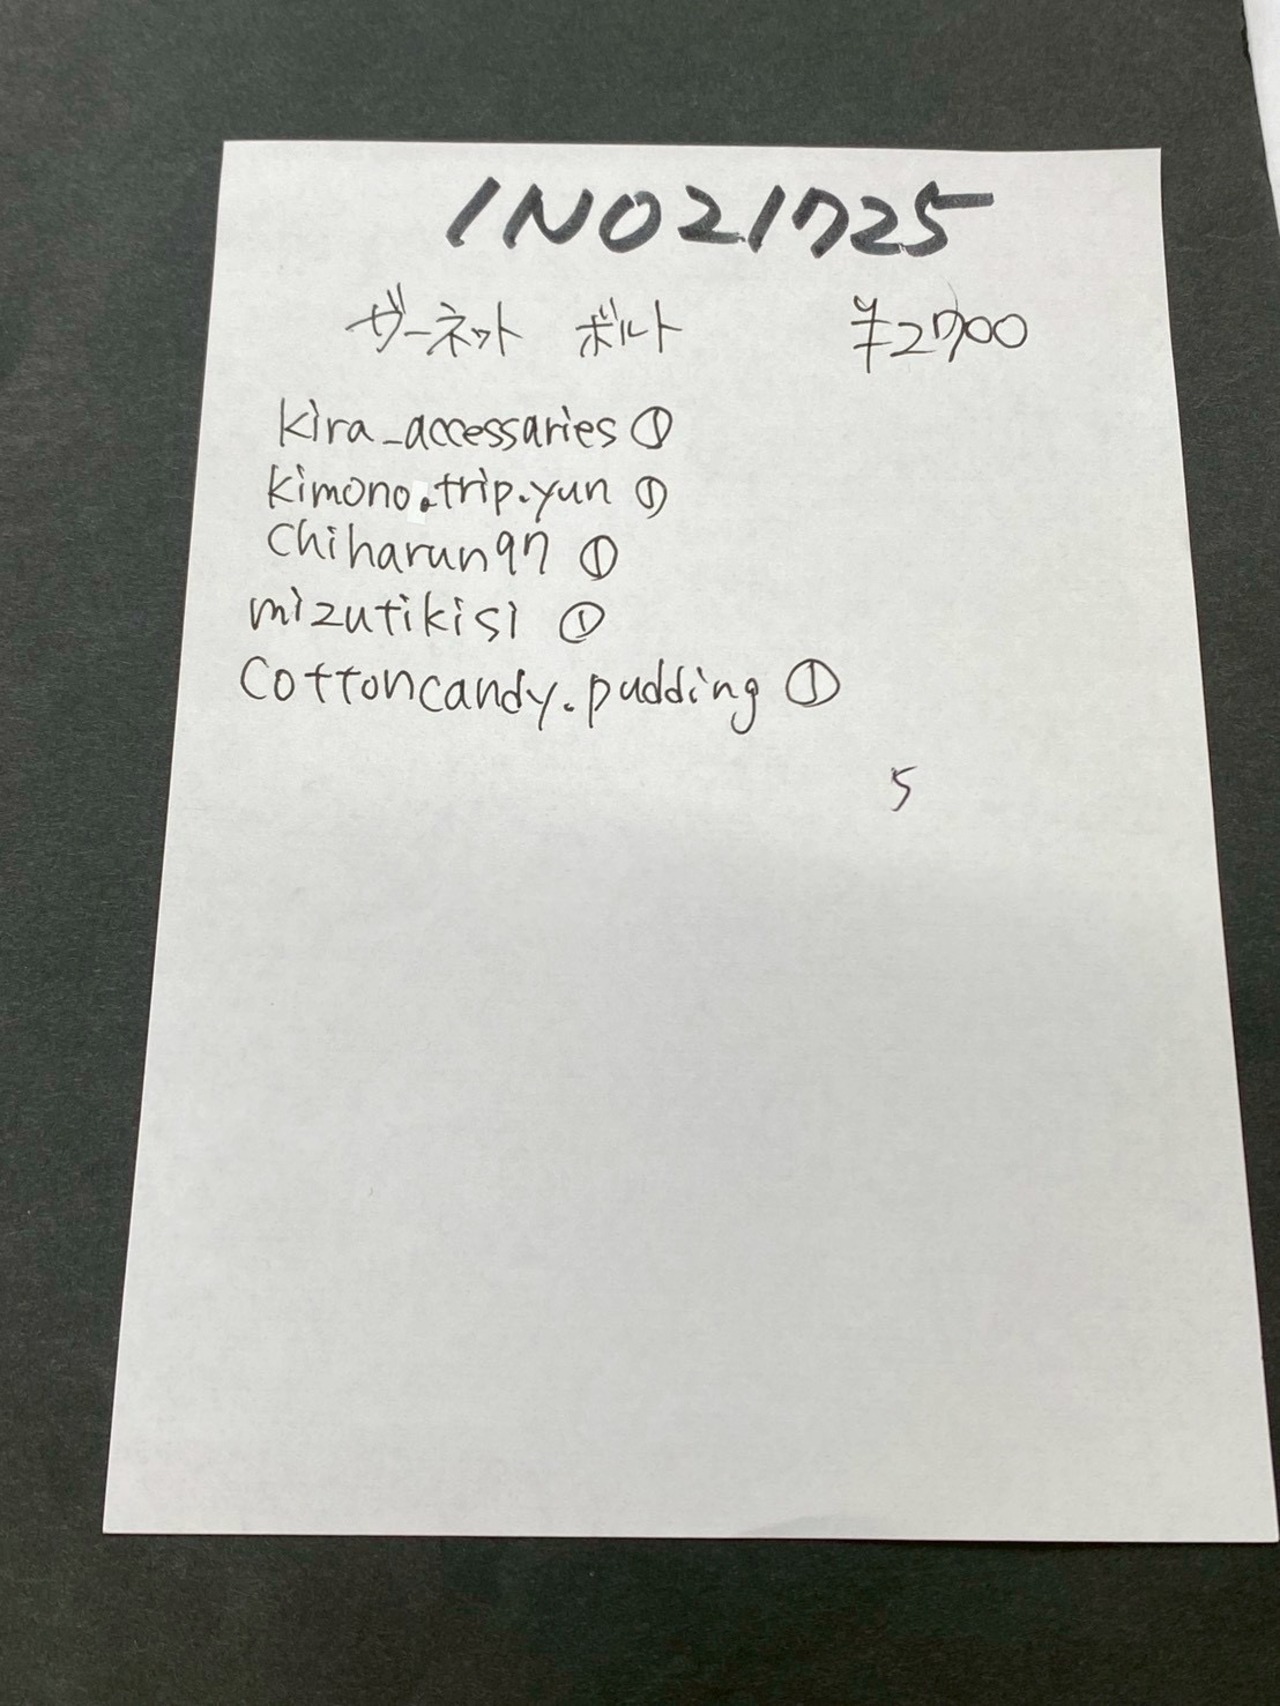 1N021725
ガーネット ボルト ¥2700
kira_accessaries ①
kimono.trip.yun ①
Chiharun97 ①
mizutikisi ①
Cottoncandy.pudding ①
5